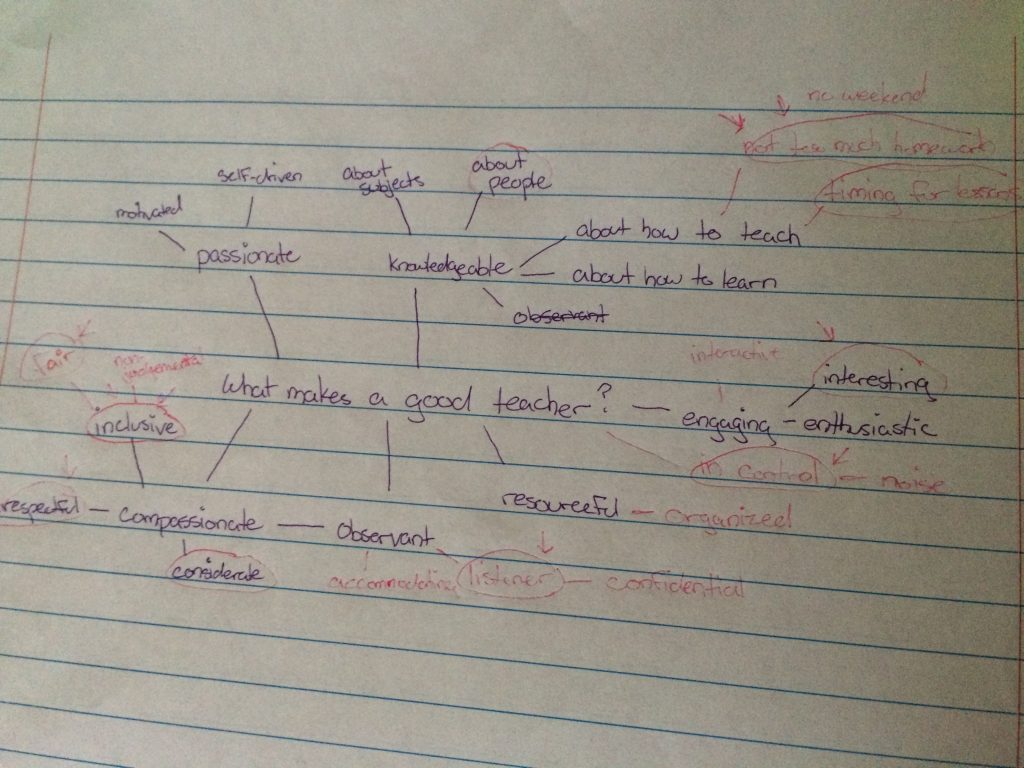 no weekend
not too much homework
timing for lessons
self-driven
about subjects
about people
motivated
passionate
knowledgeable
about how to teach
about how to learn
observant
fair
non-judgemental
interactive
interesting
inclusive
What makes a good teacher?
engaging - enthusiastic
in control - noise
respectful - compassionate - observant
resourceful - organized
considerate
accommodating
listener - confidential